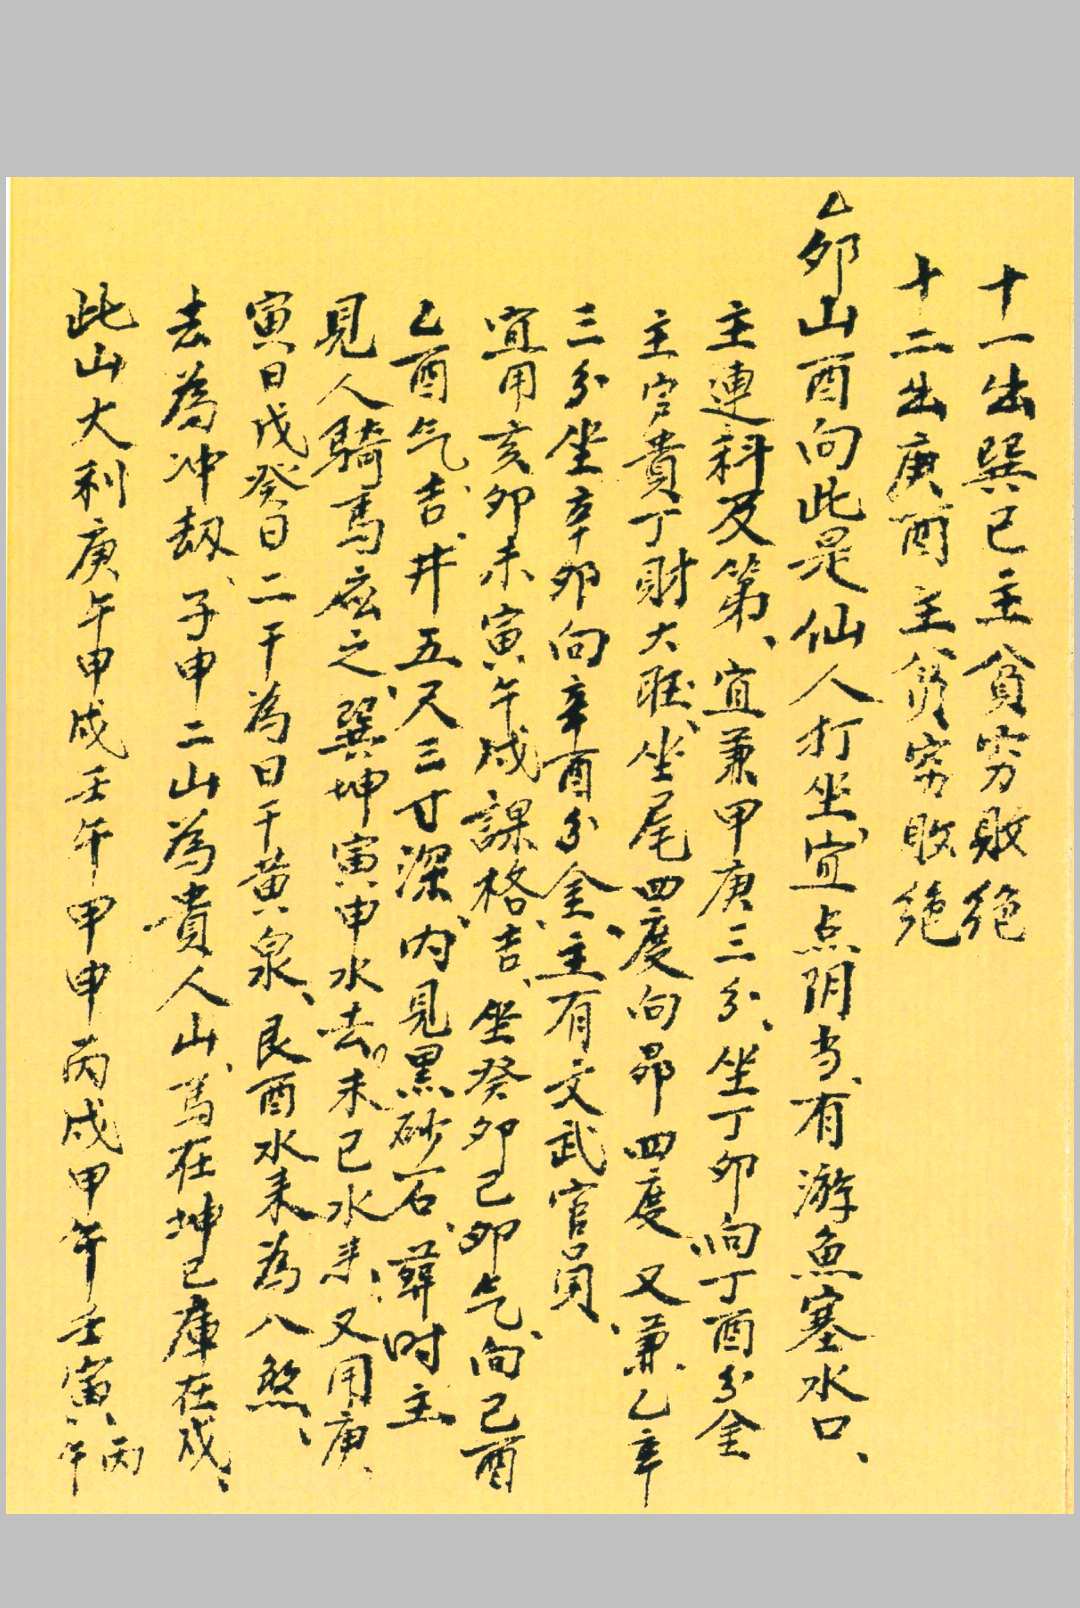 十一出巽巳主貧穷敗绝
十二出庚酉主貧穷敗绝
乙卯山酉向此是仙人打坐、宜点阴当、有游魚塞水口、
主連科及第、宜兼甲庚三分、坐丁卯、向丁酉分金
主官貴丁財大旺、坐尾四度向昴四度又兼乙辛
三分坐辛卯向辛酉分金、主有文武官员、
宜用亥卯未寅午戌課格、吉、坐癸卯己卯气、向己酉
乙酉气、吉、井五尺三寸深、内見黑砂石、葬时主
見人騎馬应之、巽坤寅申水去、未巳水来、又用庚、
寅日戊癸日二干為日干黄泉、艮酉水来為八煞、
去為冲劫、子申二山為貴人山、馬在坤巳庫在戌、
此山大利庚午甲戌壬午甲申丙戌甲午壬寅丙午